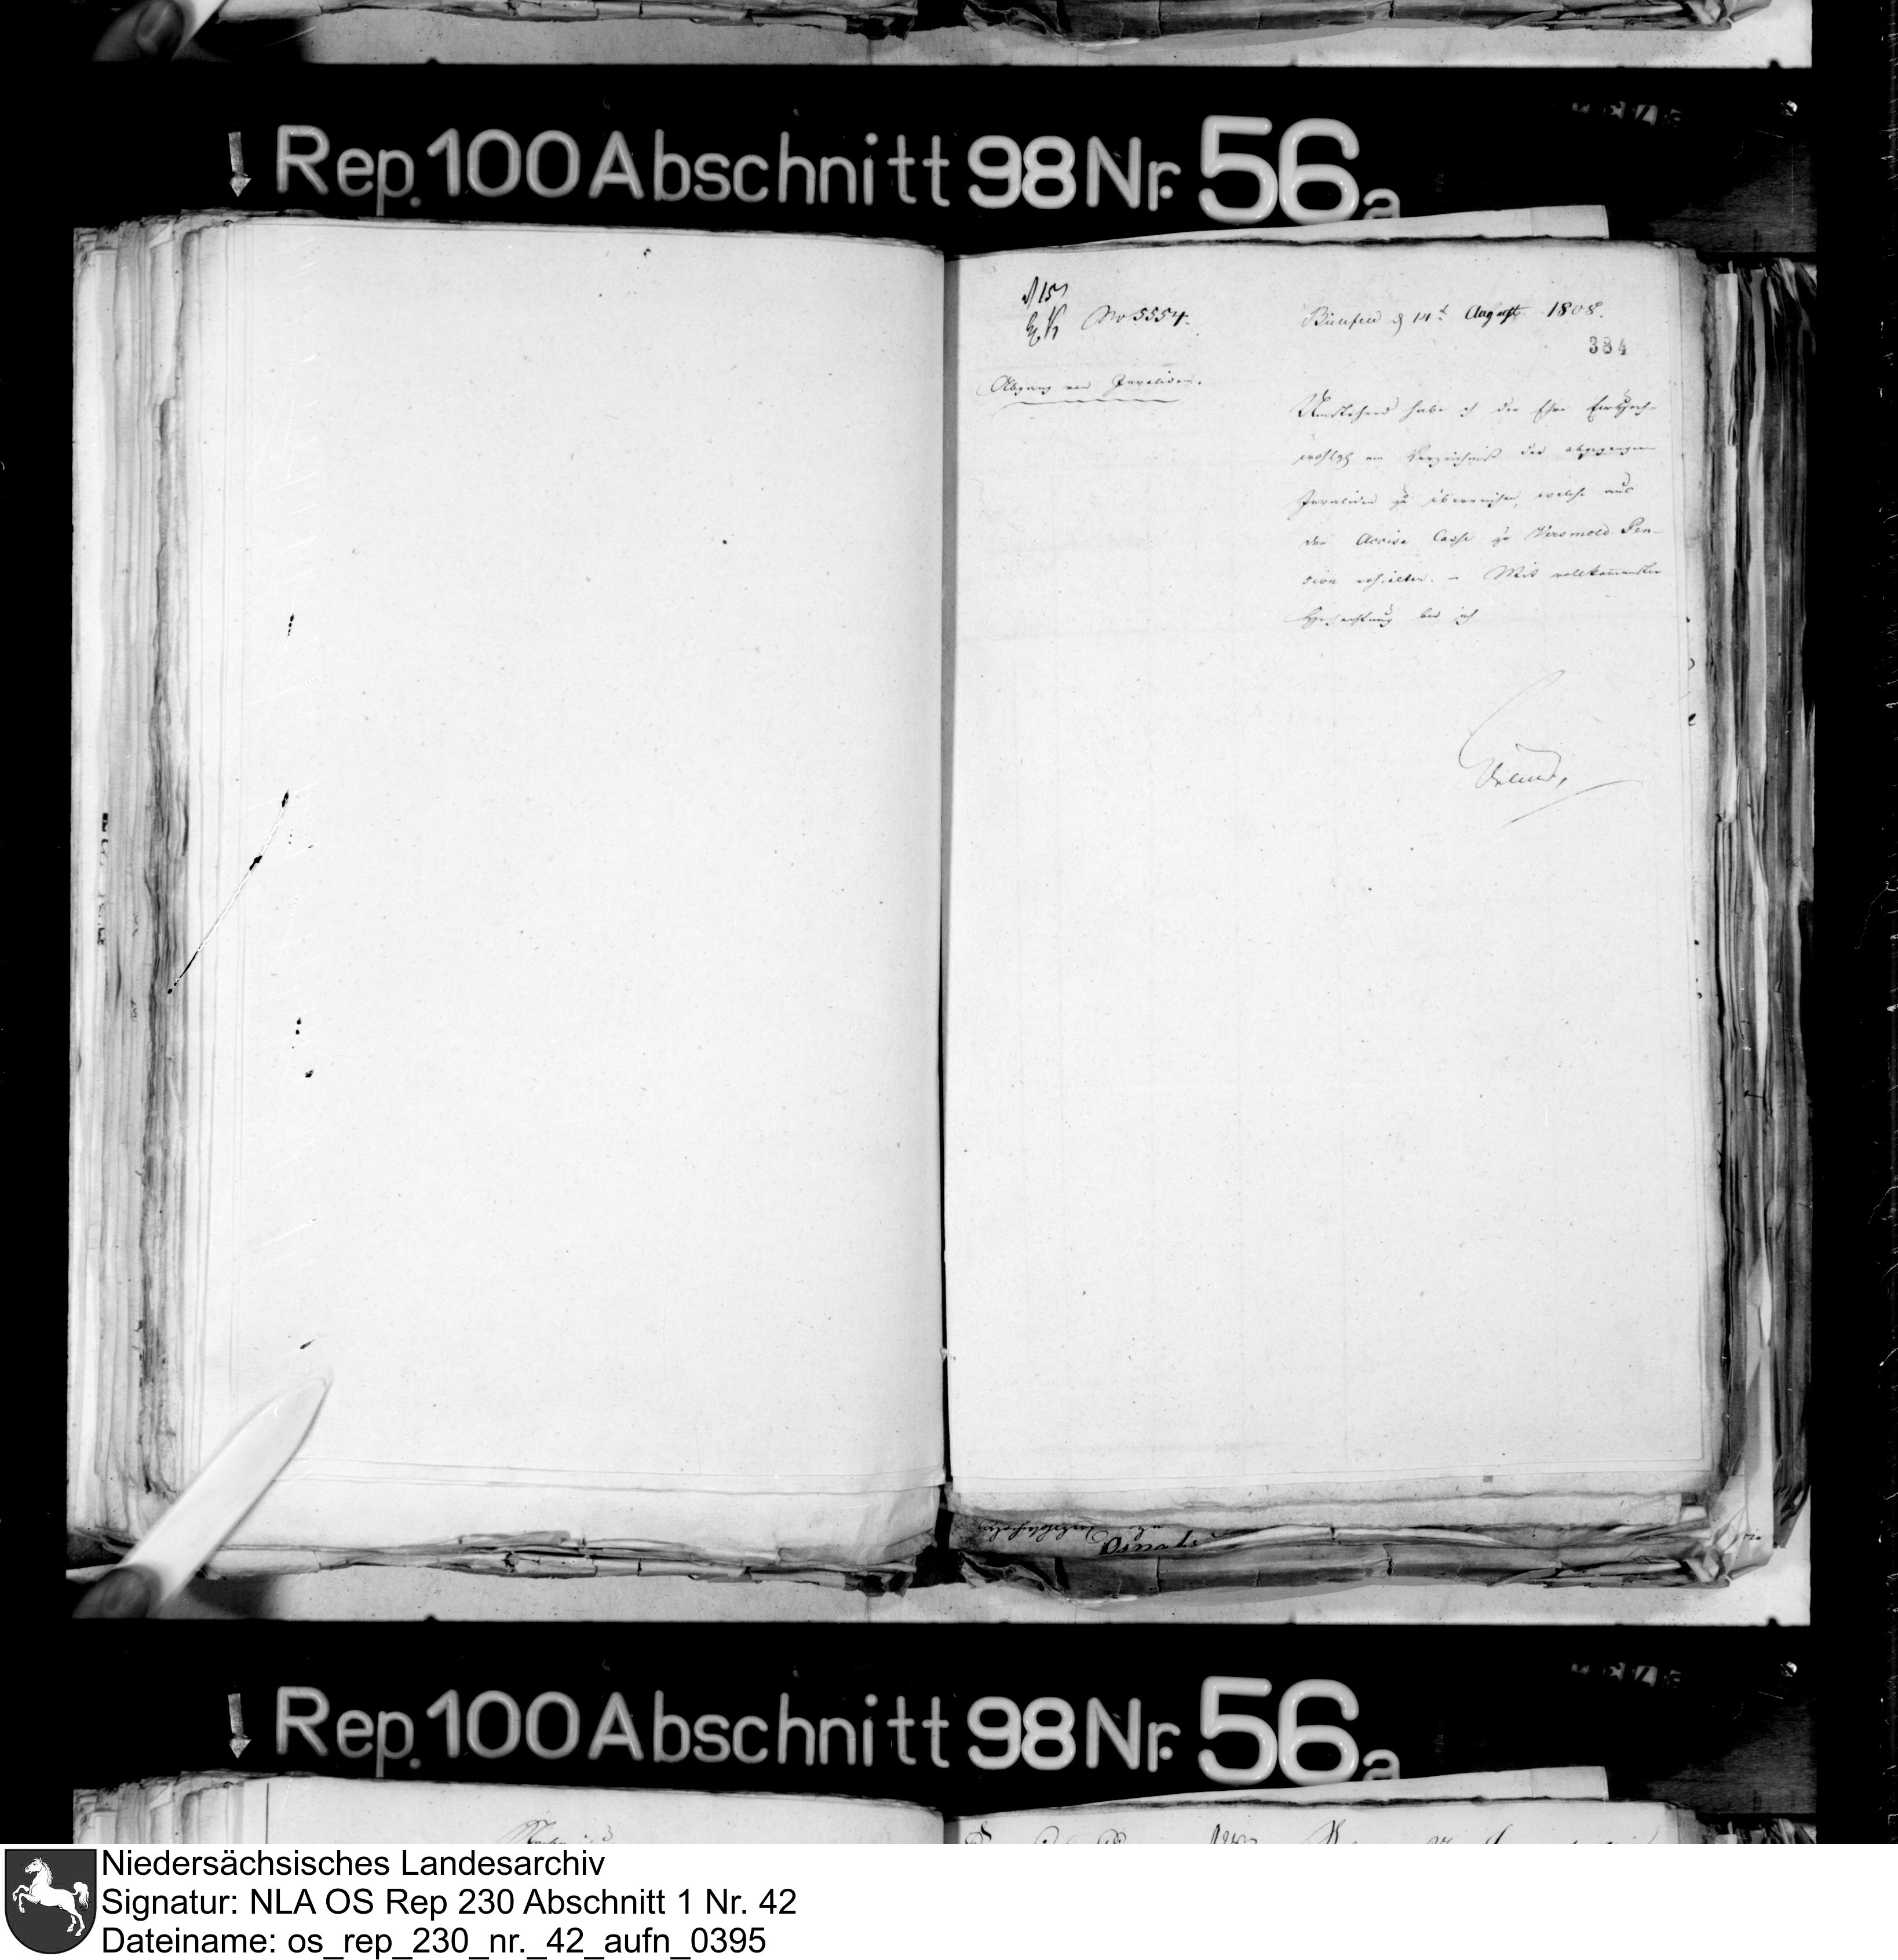 Rep. 100 Abschnitt 98 Nr. 56a
No 5554.
Bielefeld d 14t August 1808.
384
Abgang von Invaliden.
Umstehend habe ich die Ehre Ew Hoch-
wohlgb ein Verzeichniß der abgegangenen
Invaliden zu überreichen, welche aus
der Accise Casse zu Versmold Pen-
sion erhielten. – Mit vollkommenster
Hochachtung bin ich
Rep. 100 Abschnitt 98 Nr. 56a
Niedersächsisches Landesarchiv
Signatur: NLA OS Rep 230 Abschnitt 1 Nr. 42
Dateiname: os_rep_230_nr._42_aufn_0395